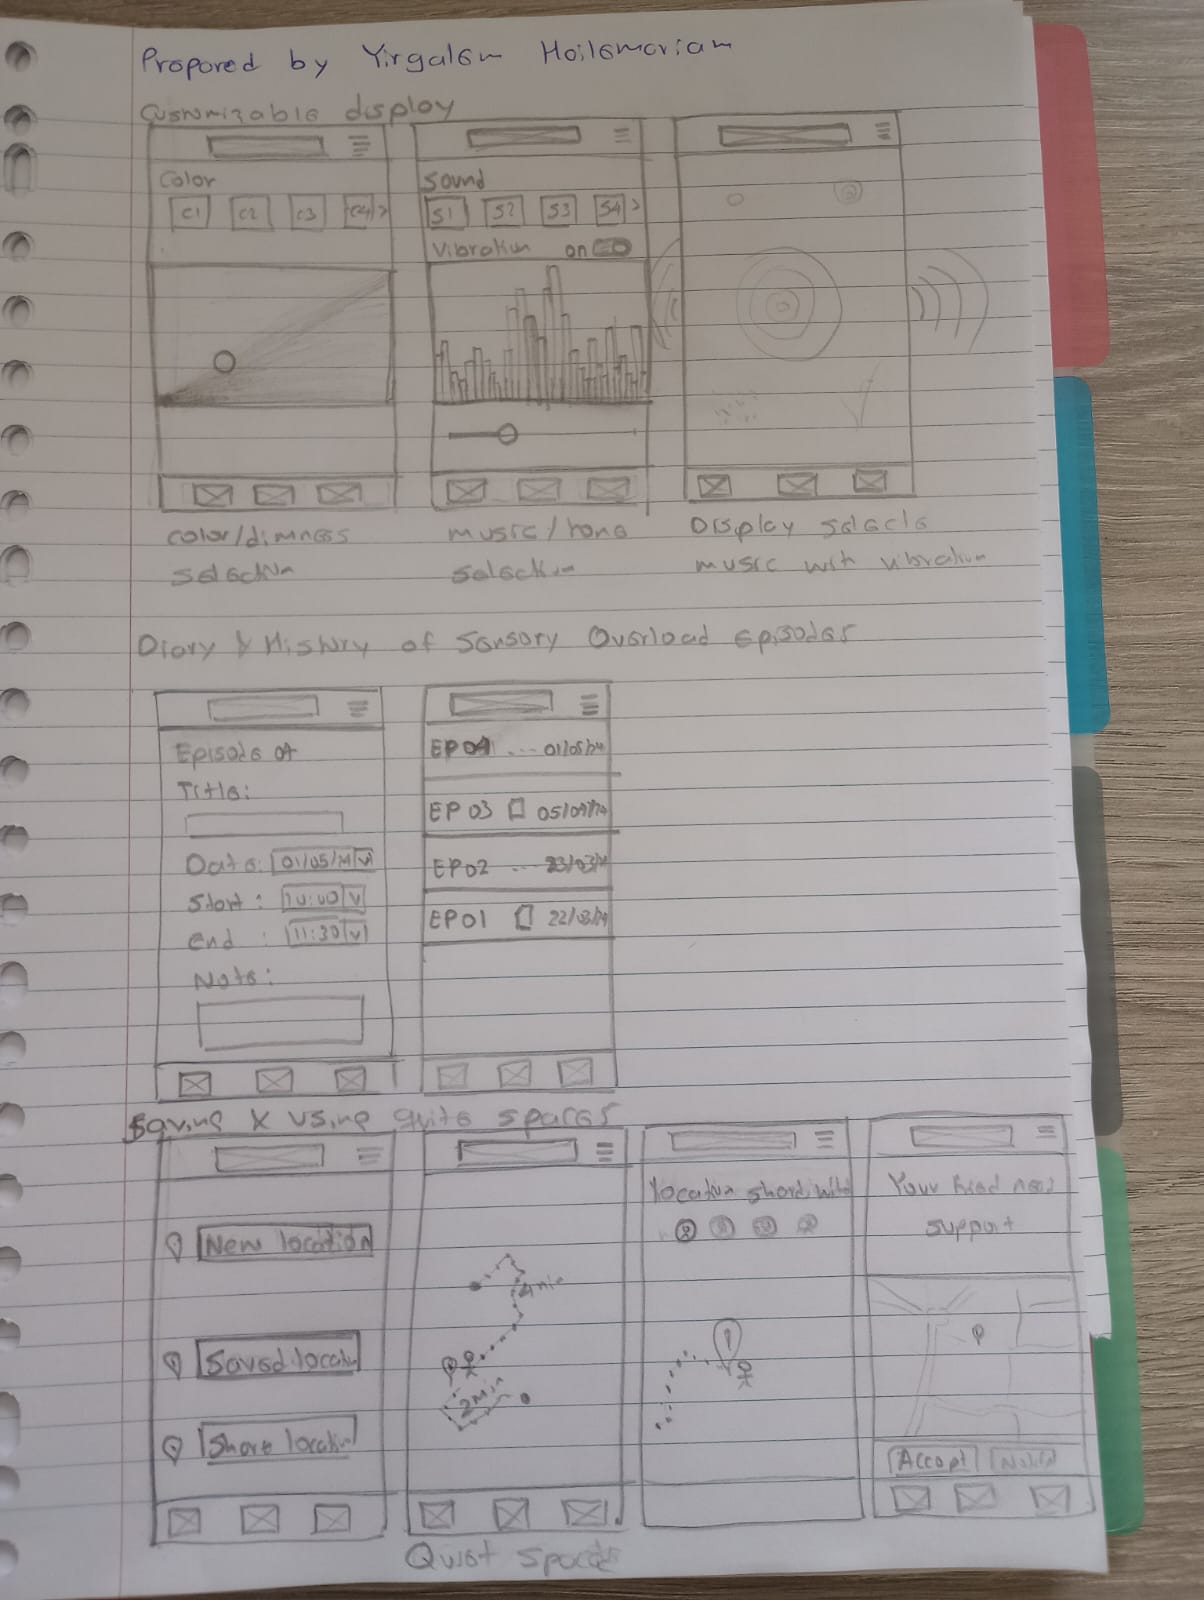 Prepared by Yirgalem Hailemariam
Customizable display
Color
C1 C2 C3 C4 >
Sound
S1 S2 S3 S4 >
Vibration on
color/dimness
selection
music/tone
selection
Display selecte
music with vibration
Diary & History of Sensory Overload episodes
Episode 04
Title:
Date: 01/05/24 V
Start : 10:00 V
end : 11:30 V
Note:
EP 04 ... 01/05/24
EP 03 05/04/24
EP02 ... 23/03/24
EP01 22/03/24
Saving & using quite spaces
New location
Saved location
Share location
4 min
2 min
location shared with
Your friend need
support
Accept
Quiet Spaces